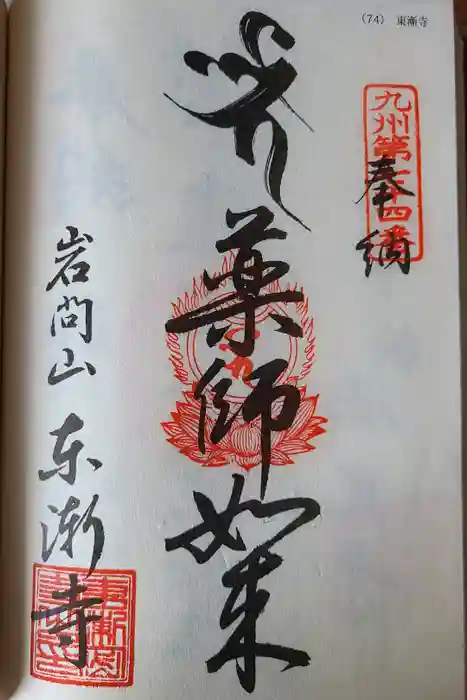 (74) 東漸寺
九州第七十四番
奉納
薬師如来
岩問山 東漸寺